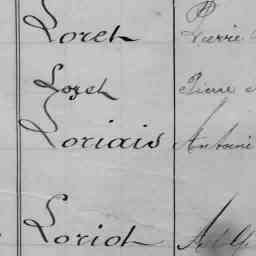 Loret Pierre
Lozet Pierre
Loriais Antoine
Loriot